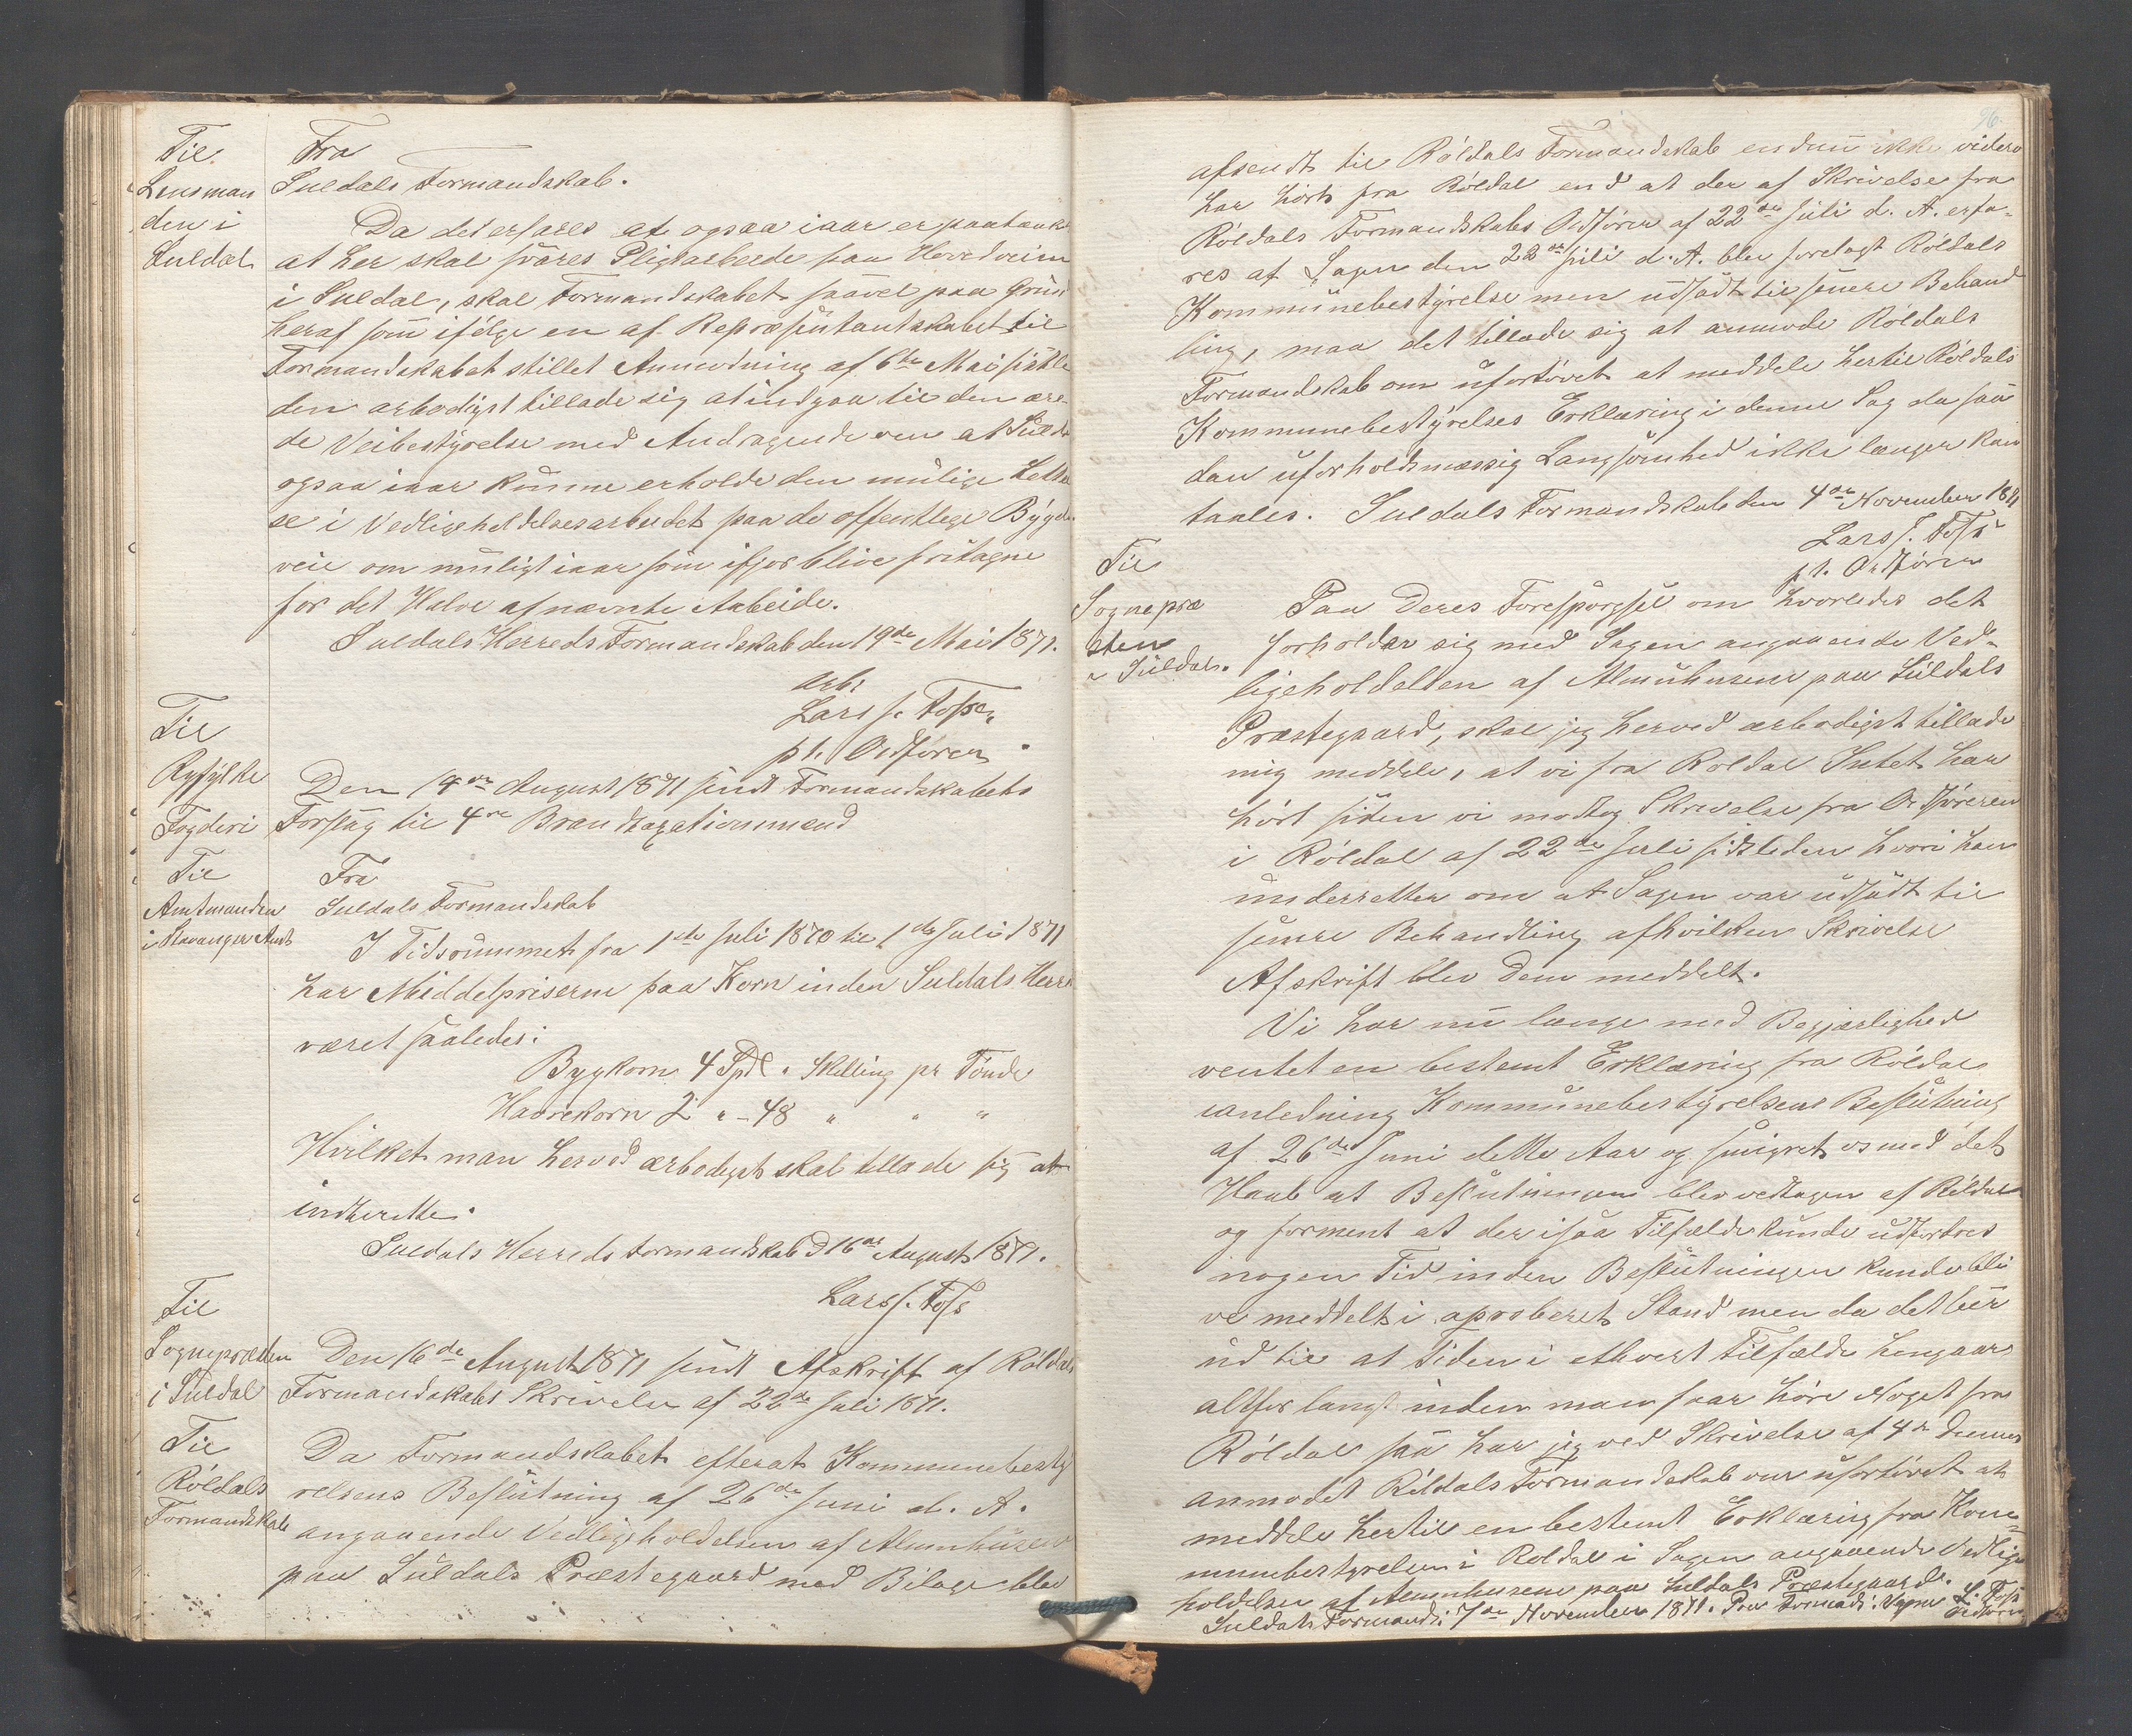 Til
Lensman
den i
Suldal
Fra
Suldals Formandskab.
Da det erfares at ogsaa iaar er paatænkt
at her skal svares Pligtarbeide paa Hovedveien
i Suldal, skal Formandskabet saavel paa Grund
heraf som ifølge en af Repræsentantskabet til
Formandskabet stillet Anmodning af 6te Mai sidstle
den ærbødigst tillade sig at indgaa til den ære-
de Veibestyrelse med Andragende om at Suldal
ogsaa iaar kunne erholde den mulige Lettel
se i Vedligeholdelsesarbeidet paa de offentlige Bygde
veie om muligt iaar som ifjor blive fritagne
for det Halve af nævnte Arbeide.
Suldals Herreds Formandskab den 19de Mai 1871.
ærb:
Lars J. Foss
pt. Ordfører.
Til
Ryfylke
Fogderi
Den 14de August 1871 sendt Formandskabets
Forslag til 4re Brandtaxationsmænd
Til
Amtmanden
i Stavanger Amt
Fra
Suldals Formandskab
I Tidsrummet fra 1ste Juli 1870 til 1ste Juli 1871
har Middelpriserne paa Korn inden Suldals Herre
været saaledes:
Bygkorn 4 Spdl " Skilling pr Tønde
Havrekorn 2 " - 48 " " "
Hvilket man herved ærbødigst skal tillade sig at
indberette.
Suldals Herreds Formandskab d 16de August 1871.
Lars J. Foss
Til
Sognepræsten
i Suldal
Den 16de August 1871 sendt Afskrift af Røldals
Formandskabs Skrivelse af 22de Juli 1871.
Til
Røldals
Formandskab
Da Formandskabet efterat Kommunebesty
relsens Beslutning af 26de Juni d. A.
angaaende Vedligeholdelsen af Almuhusene
paa Suldals Præstegaard med Bilage blev
96.
afsendt til Røldals Formandskab endnu ikke videre
har hørt fra Røldal end at der af Skrivelse fra
Røldals Formandskabs Ordfører af 22de Juli d. A. erfa-
res at Sagen den 22de Juli d. A. blev forelagt Røldals
Kommunebestyrelse men udsadt til senere Behand
ling, maa det tillade sig at anmode Røldals
Formandskab om ufortøvet at meddele hertil Røldals
Kommunebestyrelses Erklæring i denne Sag da saa
dan uforholdsmæssig Langsomhed ikke længer kan
taales. Suldals Formandskab den 4de November 1871
Lars J. Foss
pt. Ordfører
Til
Sognepræ
sten
i Suldal.
Paa Deres Forespørgsel om hvorledes det
forholder sig med Sagen angaaende Ved-
ligeholdelsen af Almuhusene paa Suldals
Præstegaard, skal jeg herved ærbødigst tillade
mig meddele, at vi fra Røldal Intet har
hørt siden vi modtog Skrivelse fra Ordføreren
i Røldal af 22de Juli sidstleden hvori han
underretter om at Sagen var udsadt til
senere Behandling afhvilken Skrivelse
Afskrift blev Dem meddelt.
Vi har nu længe med Begjærlighed
ventet en bestemt Erklæring fra Røldal
ianledning Kommunebestyrelsens Beslutning
af 26de Juni dette Aar og smigret os med det
Haab at Beslutningen blev vedtagen af Røldal
og forment at der isaa Tilfælde kunde udfordres
nogen Tid inden Beslutningen kunde bli
ve meddelt i aproberet Stand men da det seer
ud til at Tiden i ethvert Tilfælde hengaar
altfor langt inden man faar høre Noget fra
Røldal saa har jeg ved Skrivelse af 4de Dennes
anmodet Røldals Formandskab om ufortøvet at
meddele hertil en bestemt Erklæring fra Kom-
munebestyrelsen i Røldal i Sagen angaaende Vedlige
holdelsen af Almuhusene paa Suldals Præstegaard.
Suldals Formandsk: 7de November 1871. Paa Formands: Vegne L. Foss
Ordfører